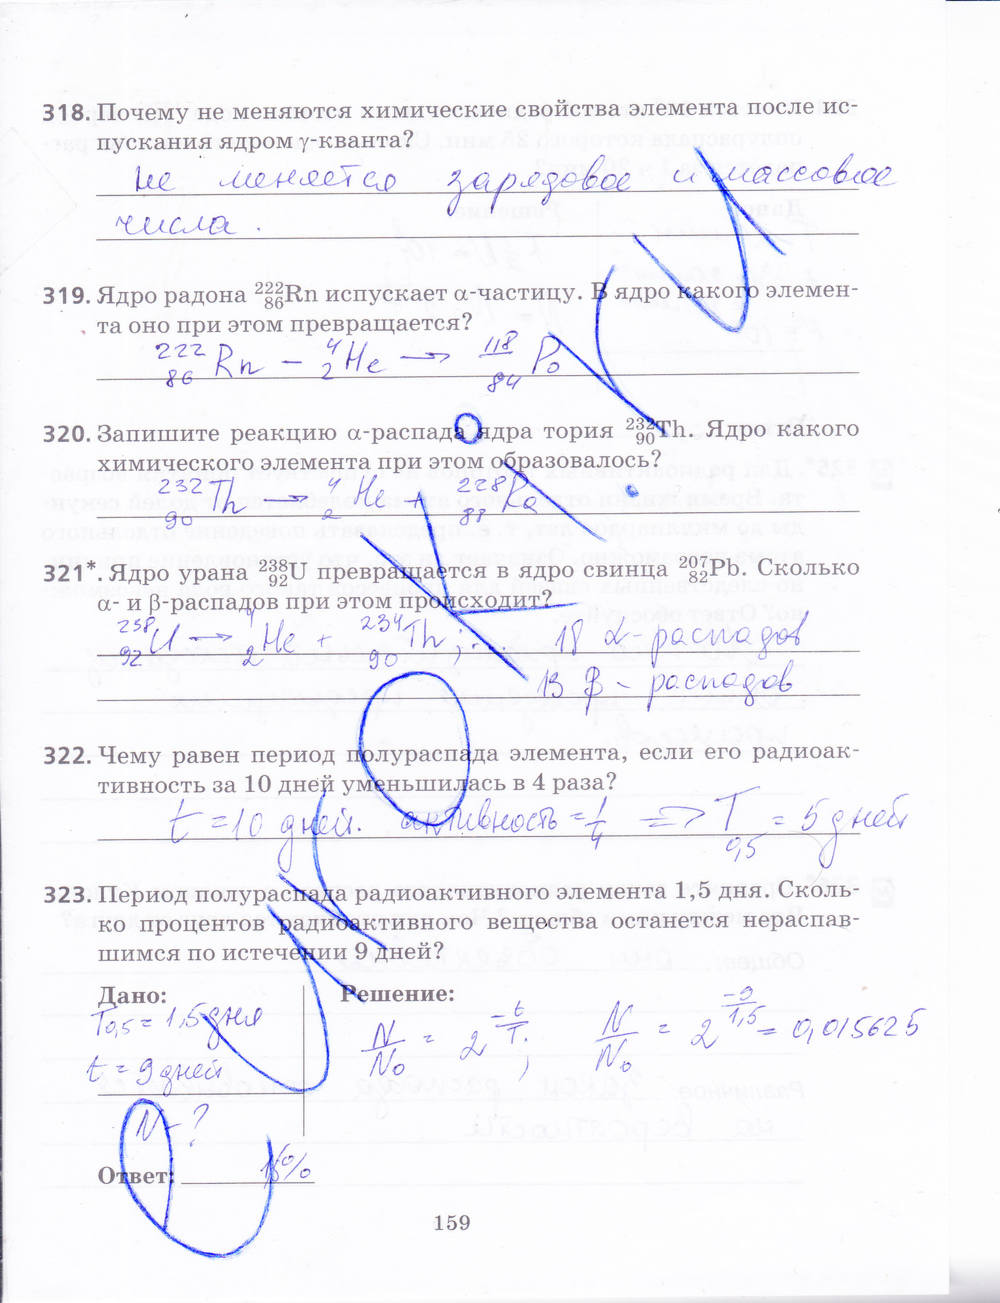 318. Почему не меняются химические свойства элемента после ис-
пускания ядром γ-кванта?
не меняется зарядовое и массовое
числа.
319. Ядро радона ²²²₈₆Rn испускает α-частицу. В ядро какого элемен-
та оно при этом превращается?
²²²₈₆Rn − ⁴₂He → ¹¹⁸₈₄Po
320. Запишите реакцию α-распада ядра тория ²³²₉₀Th. Ядро какого
химического элемента при этом образовалось?
²³²₉₀Th → ⁴₂He + ²²⁸₈₈Ra
321*. Ядро урана ²³⁸₉₂U превращается в ядро свинца ²⁰⁷₈₂Pb. Сколько
α- и β-распадов при этом происходит?
²³⁸₉₂U → ⁴₂He + ²³⁴₉₀Th; ... 18 α-распадов
13 β - распадов
322. Чему равен период полураспада элемента, если его радиоак-
тивность за 10 дней уменьшилась в 4 раза?
t = 10 дней. активность = 1/4 => T₀,₅ = 5 дней
323. Период полураспада радиоактивного элемента 1,5 дня. Сколь-
ко процентов радиоактивного вещества останется нераспав-
шимся по истечении 9 дней?
Дано: Решение:
T₀,₅ = 1,5 дня
t = 9 дней
N/N₀ = 2^(-t/T); N/N₀ = 2^(-9/1,5) = 0,015625
N - ?
Ответ: %
159